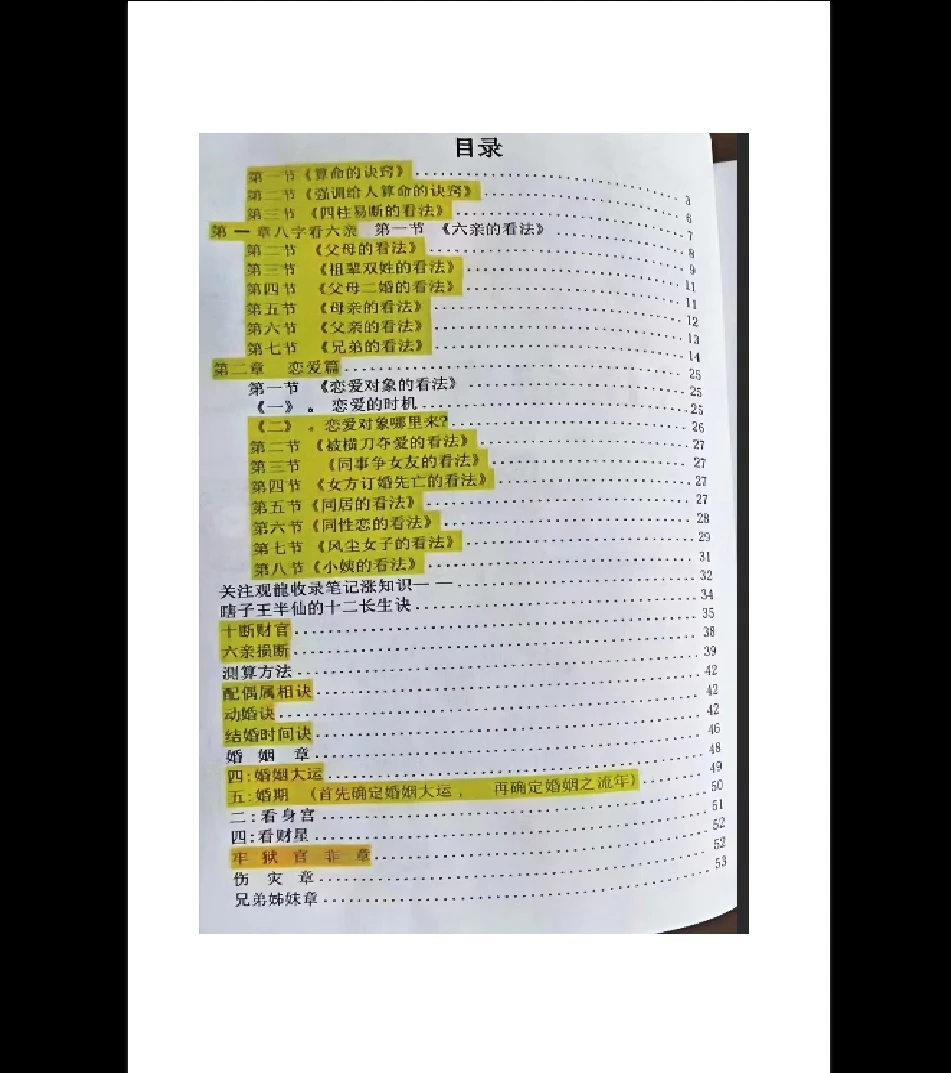 目录
第一节《算命的诀窍》 3
第二节《强训给人算命的诀窍》 6
第三节 《四柱易断的看法》 7
第一章八字看六亲 第一节 《六亲的看法》 8
第二节 《父母的看法》 9
第三节 《祖辈双姓的看法》 11
第四节 《父母二婚的看法》 11
第五节 《母亲的看法》 12
第六节 《父亲的看法》 13
第七节 《兄弟的看法》 14
第二章 恋爱篇 25
第一节 《恋爱对象的看法》 25
《一》。恋爱的时机 25
《二》。恋爱对象哪里来? 26
第二节 《被横刀夺爱的看法》 27
第三节 《同事争女友的看法》 27
第四节 《女方订婚先亡的看法》 27
第五节《同居的看法》 27
第六节《同性恋的看法》 28
第七节 《风尘女子的看法》 29
第八节《小姨的看法》 31
关注观龍收录笔记涨知识一一 32
瞎子王半仙的十二长生诀 34
十断财官 35
六亲损断 38
测算方法 39
配偶属相诀 42
动婚诀 42
结婚时间诀 42
婚 姻 章 46
四:婚姻大运 48
五:婚期 (首先确定婚姻大运, 再确定婚姻之流年) 49
二:看身宫 50
四:看财星 51
牢 狱 官 非 章 52
伤 灾 章 52
兄弟姊妹章 53